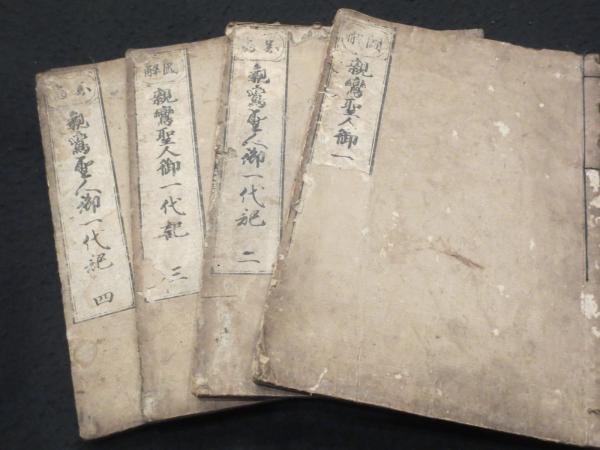 図解
親鸞聖人御一
親鸞聖人御一代記
二
図解
親鸞聖人御一代記
三
親鸞聖人御一代記
四